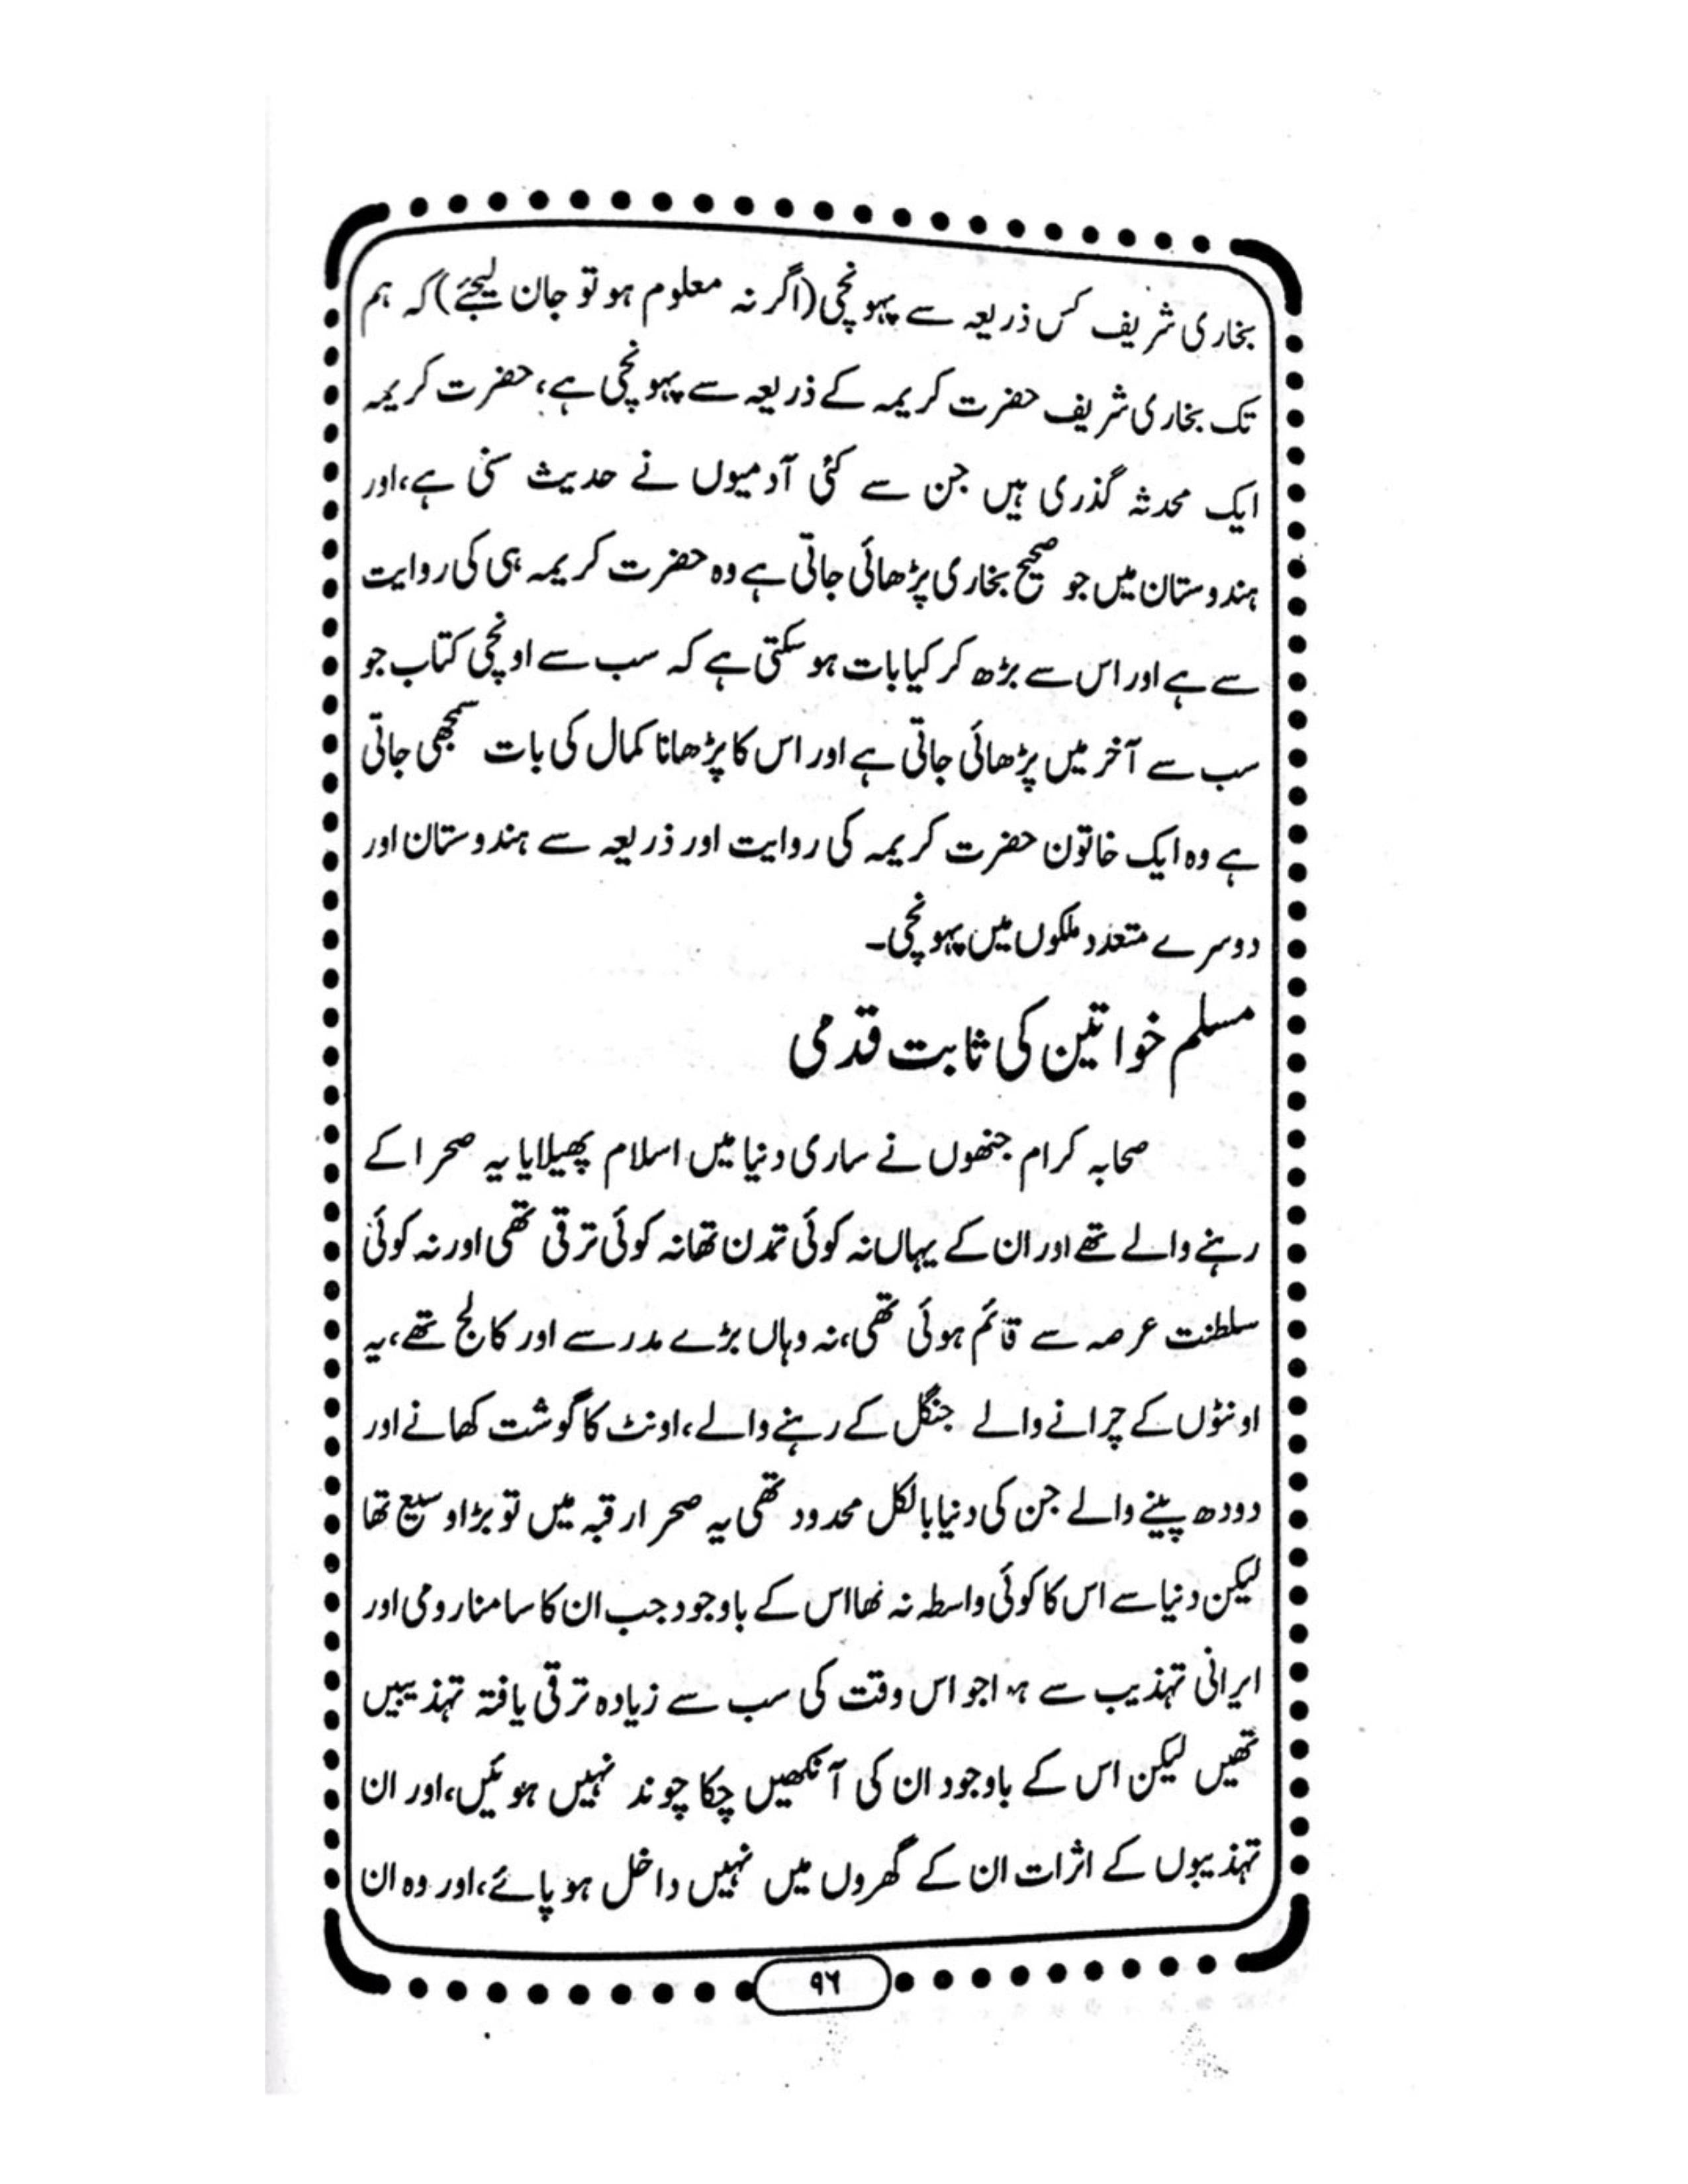 بخاری شریف کس ذریعہ سے پہونچی (اگر نہ معلوم ہو تو جان لیجئے) کہ ہم
تک بخاری شریف حضرت کریمہ کے ذریعہ سے پہونچی ہے، حضرت کریمہ
ایک محدثہ گذری ہیں جن سے کئی آدمیوں نے حدیث سنی ہے، اور
ہندوستان میں جو صحیح بخاری پڑھائی جاتی ہے وہ حضرت کریمہ ہی کی روایت
سے ہے اور اس سے بڑھ کر کیا بات ہو سکتی ہے کہ سب سے اونچی کتاب جو
سب سے آخر میں پڑھائی جاتی ہے اور اس کا پڑھانا کمال کی بات سمجھی جاتی
ہے وہ ایک خاتون حضرت کریمہ کی روایت اور ذریعہ سے ہندوستان اور
دوسرے متعدد ملکوں میں پہونچی۔
مسلم خواتین کی ثابت قدمی
صحابہ کرام جنھوں نے ساری دنیا میں اسلام پھیلایا یہ صحرا کے
رہنے والے تھے اور ان کے یہاں نہ کوئی تمدن تھا نہ کوئی ترقی تھی اور نہ کوئی
سلطنت عرصہ سے قائم ہوئی تھی، نہ وہاں بڑے مدرسے اور کالج تھے، یہ
اونٹوں کے چرانے والے جنگل کے رہنے والے، اونٹ کا گوشت کھانے اور
دودھ پینے والے جن کی دنیا بالکل محدود تھی یہ صحرا رقبہ میں تو بڑا وسیع تھا
لیکن دنیا سے اس کا کوئی واسطہ نہ تھا اس کے باوجود جب ان کا سامنا رومی اور
ایرانی تہذیب سے ہوا جو اس وقت کی سب سے زیادہ ترقی یافتہ تہذیبیں
تھیں لیکن اس کے باوجود ان کی آنکھیں چکا چوند نہیں ہوئیں، اور ان
تہذیبوں کے اثرات ان کے گھروں میں نہیں داخل ہو پائے، اور وہ ان
۹۶